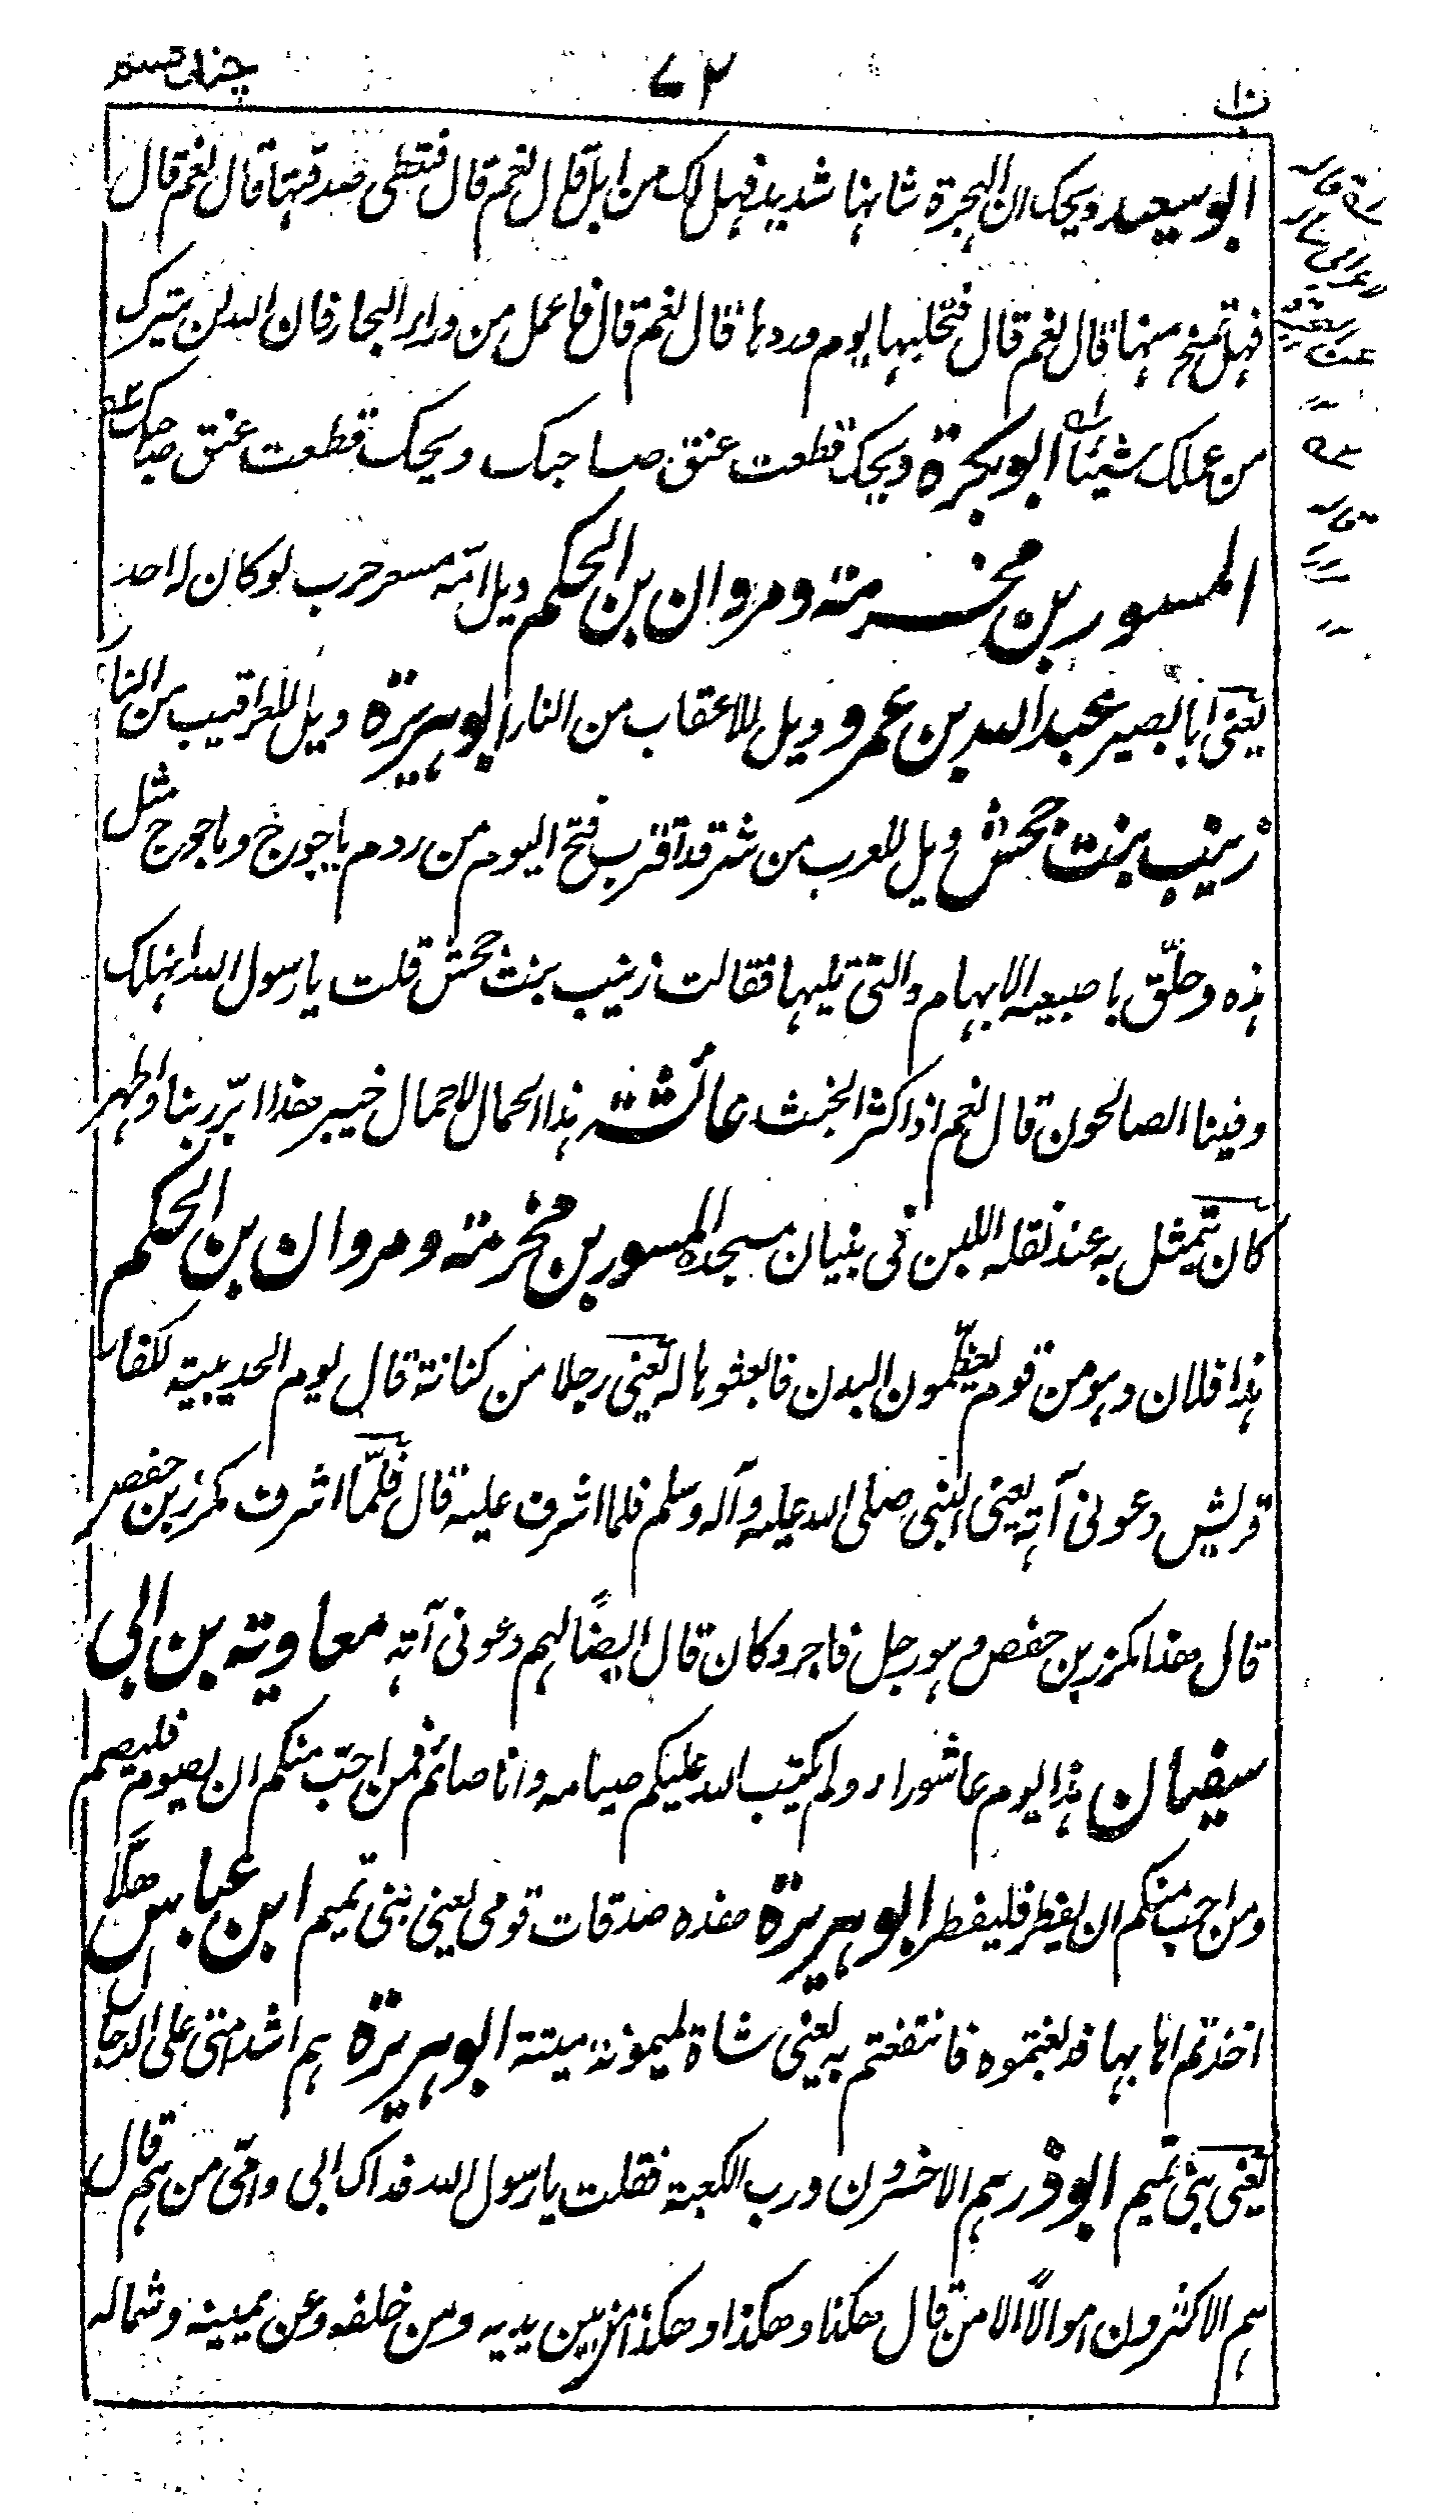 ۷۲
ابو سعید ویحک ان الہجرۃ شانہا شدید فہل لک من ابل قال نعم قال فتعطی صدقتہا قال نعم قال
فہل تمنح منہا قال نعم قال فتحلبہا یوم وردہا قال نعم قال فاعمل من وراء البحار فان اللہ لن یترک
من عملک شیئا ابو بکرۃ ویحک قطعت عنق صاحبک ویحک قطعت عنق صاحبک
المسور بن مخرمۃ ومروان بن الحکم ویل امہ مسعر حرب لو کان لہ احد
یعنی ابا بصیر عبد اللہ بن عمرو ویل للاعقاب من النار ابو ہریرۃ ویل للعراقیب من النار
زینب بنت جحش ویل للعرب من شر قد اقترب فتح الیوم من ردم یاجوج وماجوج مثل
ہذہ وحلّق باصبعیہ الابہام والتی تلیہا فقالت زینب بنت جحش قلت یا رسول اللہ انہلک
وفینا الصالحون قال نعم اذا کثر الخبث عائشۃ ہذا الحمال لا حمال خیبر ھذا ابرّ ربنا واطہر
کان یتمثل بہ عند نقلہ اللبن فی بنیان مسجدہ المسور بن مخرمۃ ومروان بن الحکم
ہذا فلان وہو من قوم یعظّمون البدن فابعثوہا لہ یعنی رجلا من کنانۃ قال یوم الحدیبیۃ لکفار
قریش دعونی آتہ یعنی النبی صلی اللہ علیہ وآلہ وسلم فلما اشرف علیہ قال فلمّا اشرف مکرز بن حفص
قال ھذا مکرز بن حفص وہو رجل فاجر وکان قال ایضًا لہم دعونی آتہ معاویۃ بن ابی
سفیان ہذا یوم عاشوراء ولم یکتب اللہ علیکم صیامہ وانا صائم فمن احبّ منکم ان یصوم فلیصم
ومن احب منکم ان یفطر فلیفطر ابو ہریرۃ ھذہ صدقات قومی یعنی بنی تمیم ابن عباس ھلّا
اخذتم اہابہا فدبغتموہ فانتفعتم بہ یعنی شاۃ لمیمونۃ میتۃ ابو ہریرۃ ہم اشد امتی علی الدجال
یعنی بنی تمیم ابوذر ہم الاخسرون ورب الکعبۃ فقلت یا رسول اللہ فداک ابی وامّی من ہم قال
ہم الاکثرون اموالًا الا من قال ھکذا وھکذا وھکذا من بین یدیہ ومن خلفہ وعن یمینہ وشمالہ